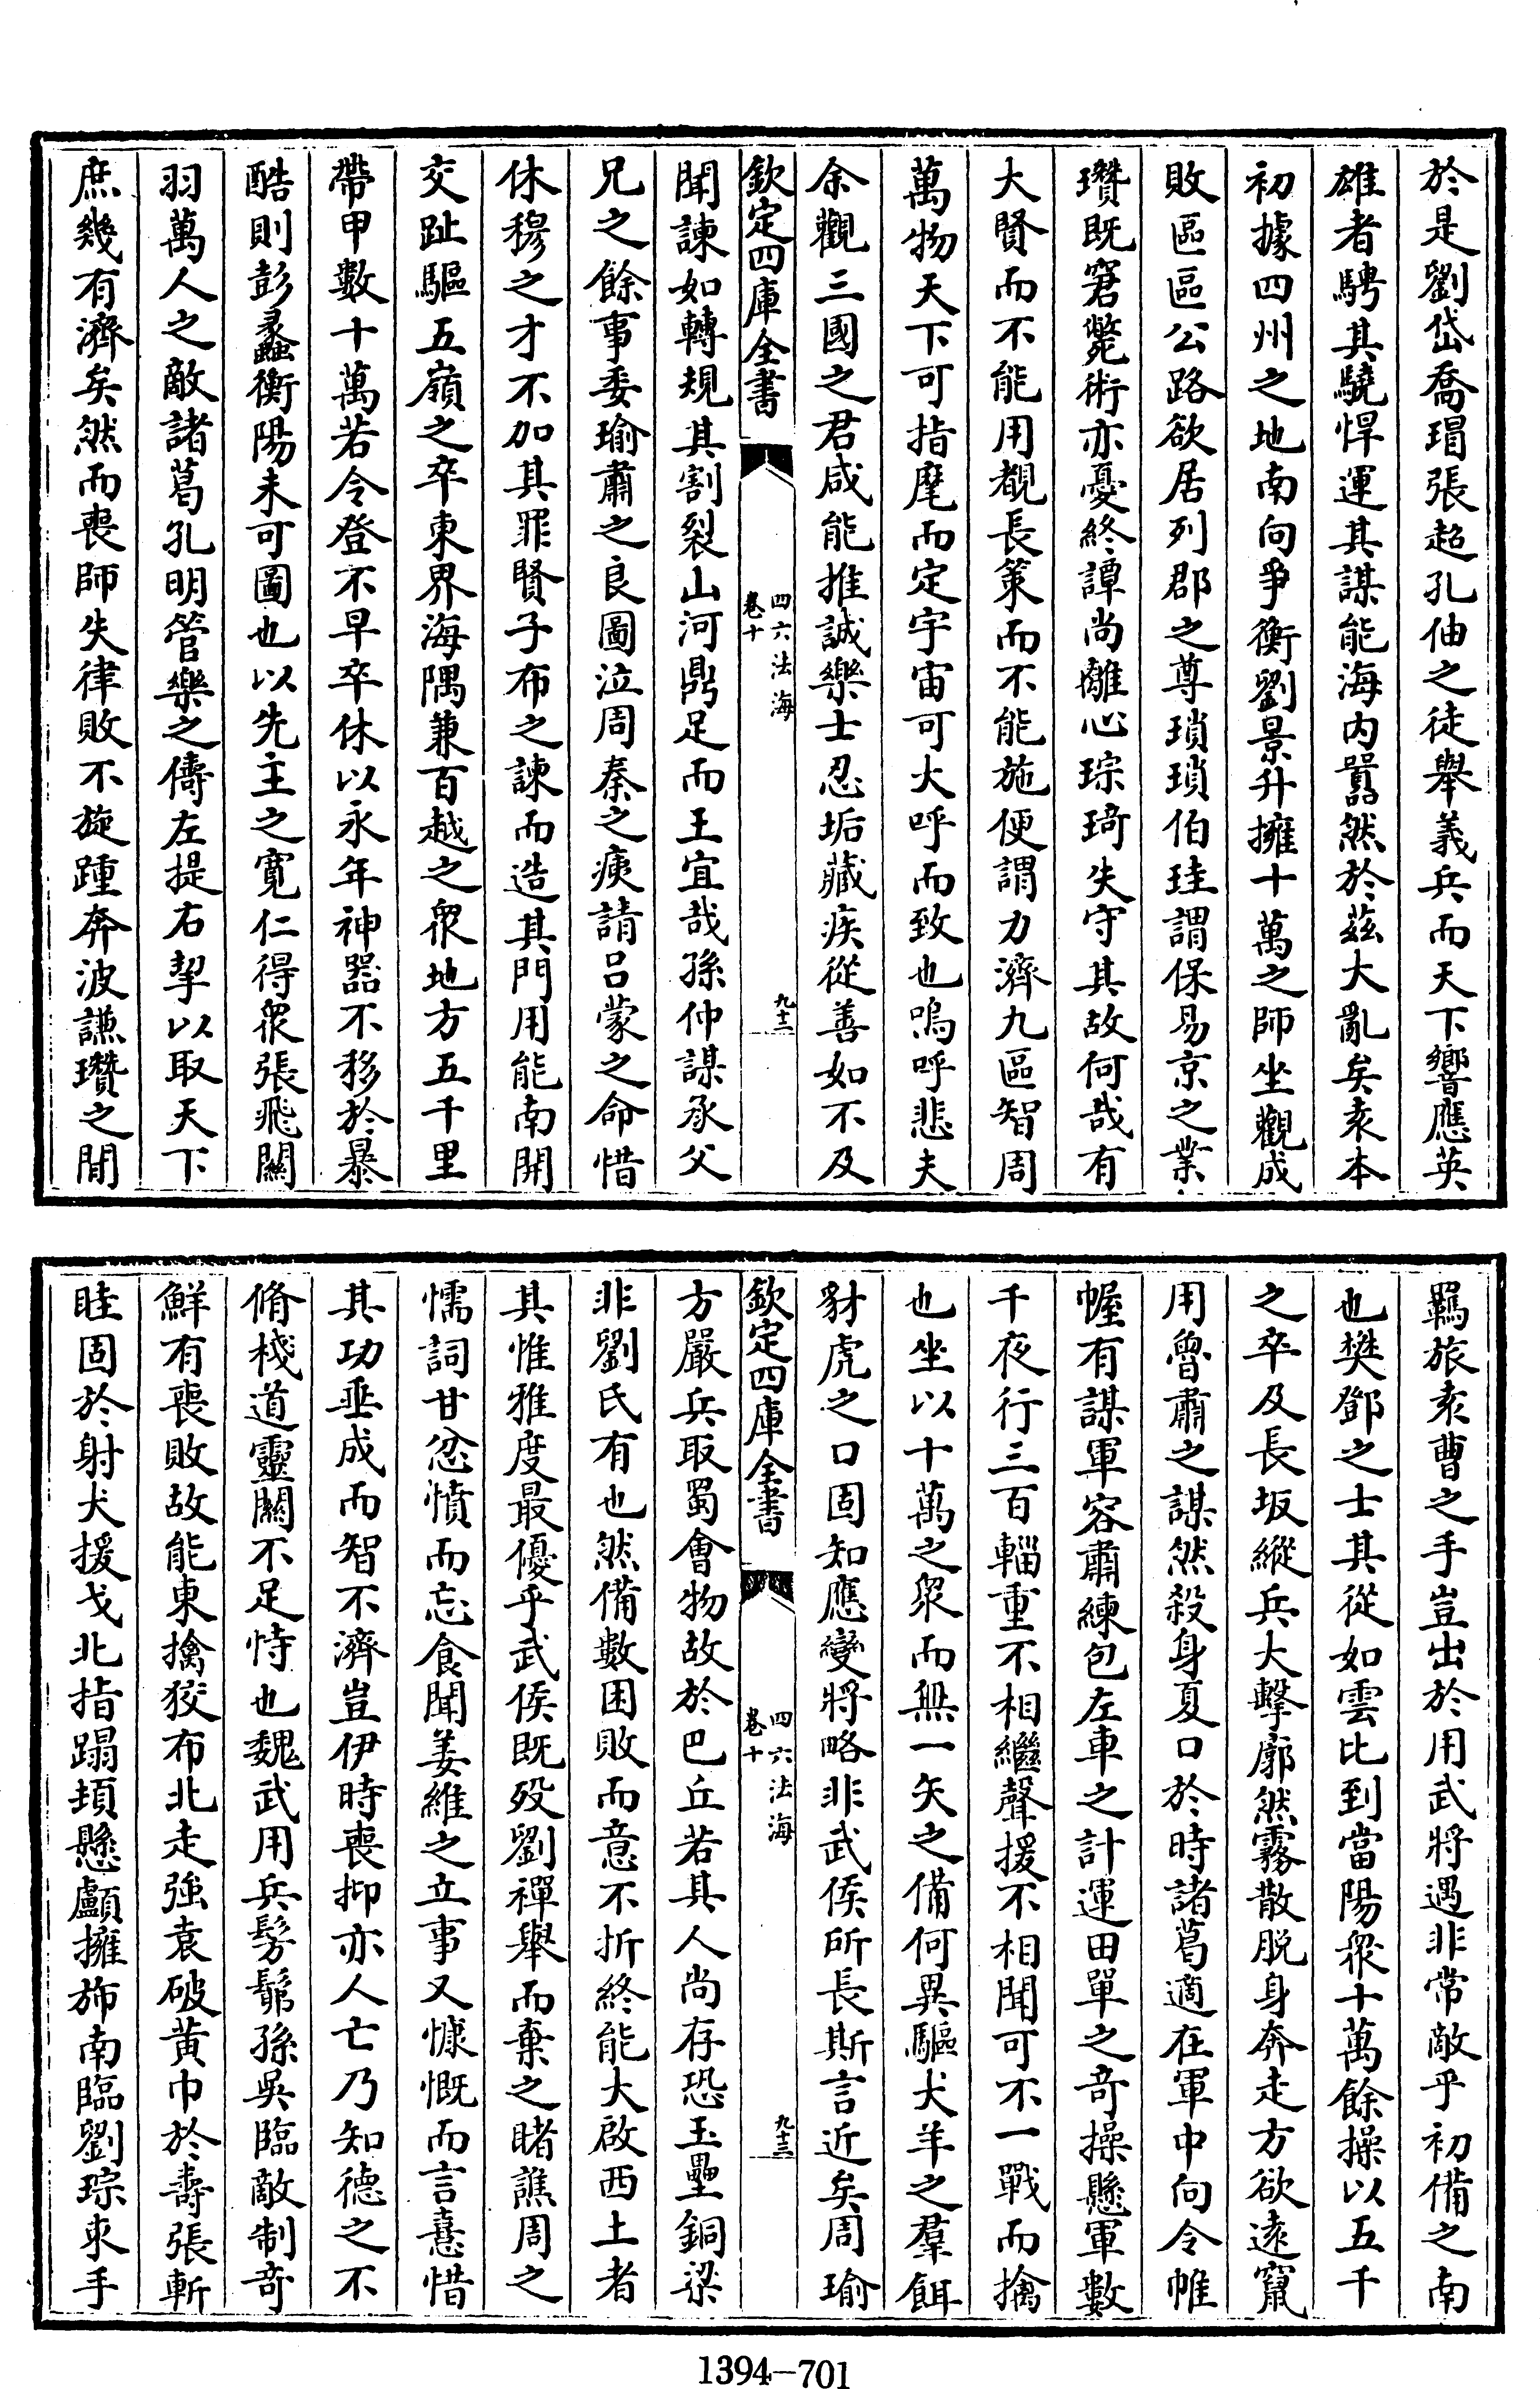 於是劉岱喬瑁張超孔伷之徒舉義兵而天下響應英
雄者騁其驍悍運其謀能海内囂然於茲大亂矣袁本
初據四州之地南向爭衡劉景升擁十萬之師坐觀成
敗區區公路欲居列郡之尊瑣瑣伯珪謂保易京之業
瓚既窘斃術亦憂終譚尚離心琮琦失守其故何哉有
大賢而不能用覩長策而不能施便謂力濟九區智周
萬物天下可指麾而定宇宙可大呼而致也嗚呼悲夫
余觀三國之君咸能推誠樂士忍垢藏疾從善如不及
欽定四庫全書
四六法海
卷十
九十二
聞諫如轉規其割裂山河鼎足而王宜哉孫仲謀承父
兄之餘事委瑜肅之良圖泣周秦之痍請呂蒙之命惜
休穆之才不加其罪賢子布之諫而造其門用能南開
交趾驅五嶺之卒東界海隅兼百越之衆地方五千里
帶甲數十萬若令登不早卒休以永年神器不移於暴
酷則彭蠡衡陽未可圖也以先主之寬仁得衆張飛關
羽萬人之敵諸葛孔明管樂之儔左提右挈以取天下
庶幾有濟矣然而喪師失律敗不旋踵奔波謙瓚之間
羈旅袁曹之手豈出於用武將遇非常敵乎初備之南
也樊鄧之士其從如雲比到當陽衆十萬餘操以五千
之卒及長坂縱兵大擊廓然霧散脫身奔走方欲遠竄
用魯肅之謀然殺身夏口於時諸葛適在軍中向令帷
幄有謀軍容肅練包左車之計運田單之奇操懸軍數
千夜行三百輜重不相繼聲援不相聞可不一戰而擒
也坐以十萬之衆而無一矢之備何異驅犬羊之羣餌
豺虎之口固知應變將略非武侯所長斯言近矣周瑜
欽定四庫全書
四六法海
卷十
九十三
方嚴兵取蜀會物故於巴丘若其人尚存恐玉壘銅梁
非劉氏有也然備數困敗而意不折終能大啟西土者
其惟雅度最優乎武侯既歿劉禪舉而棄之睹譙周之
懦詞甘忿憤而忘食聞姜維之立事又慷慨而言憙惜
其功垂成而智不濟豈伊時喪抑亦人亡乃知德之不
脩棧道靈關不足恃也魏武用兵髣髴孫吳臨敵制奇
鮮有喪敗故能東擒狡布北走強袁破黄巾於壽張斬
眭固於射犬援戈北指蹋頓懸顱擁斾南臨劉琮束手
1394—701